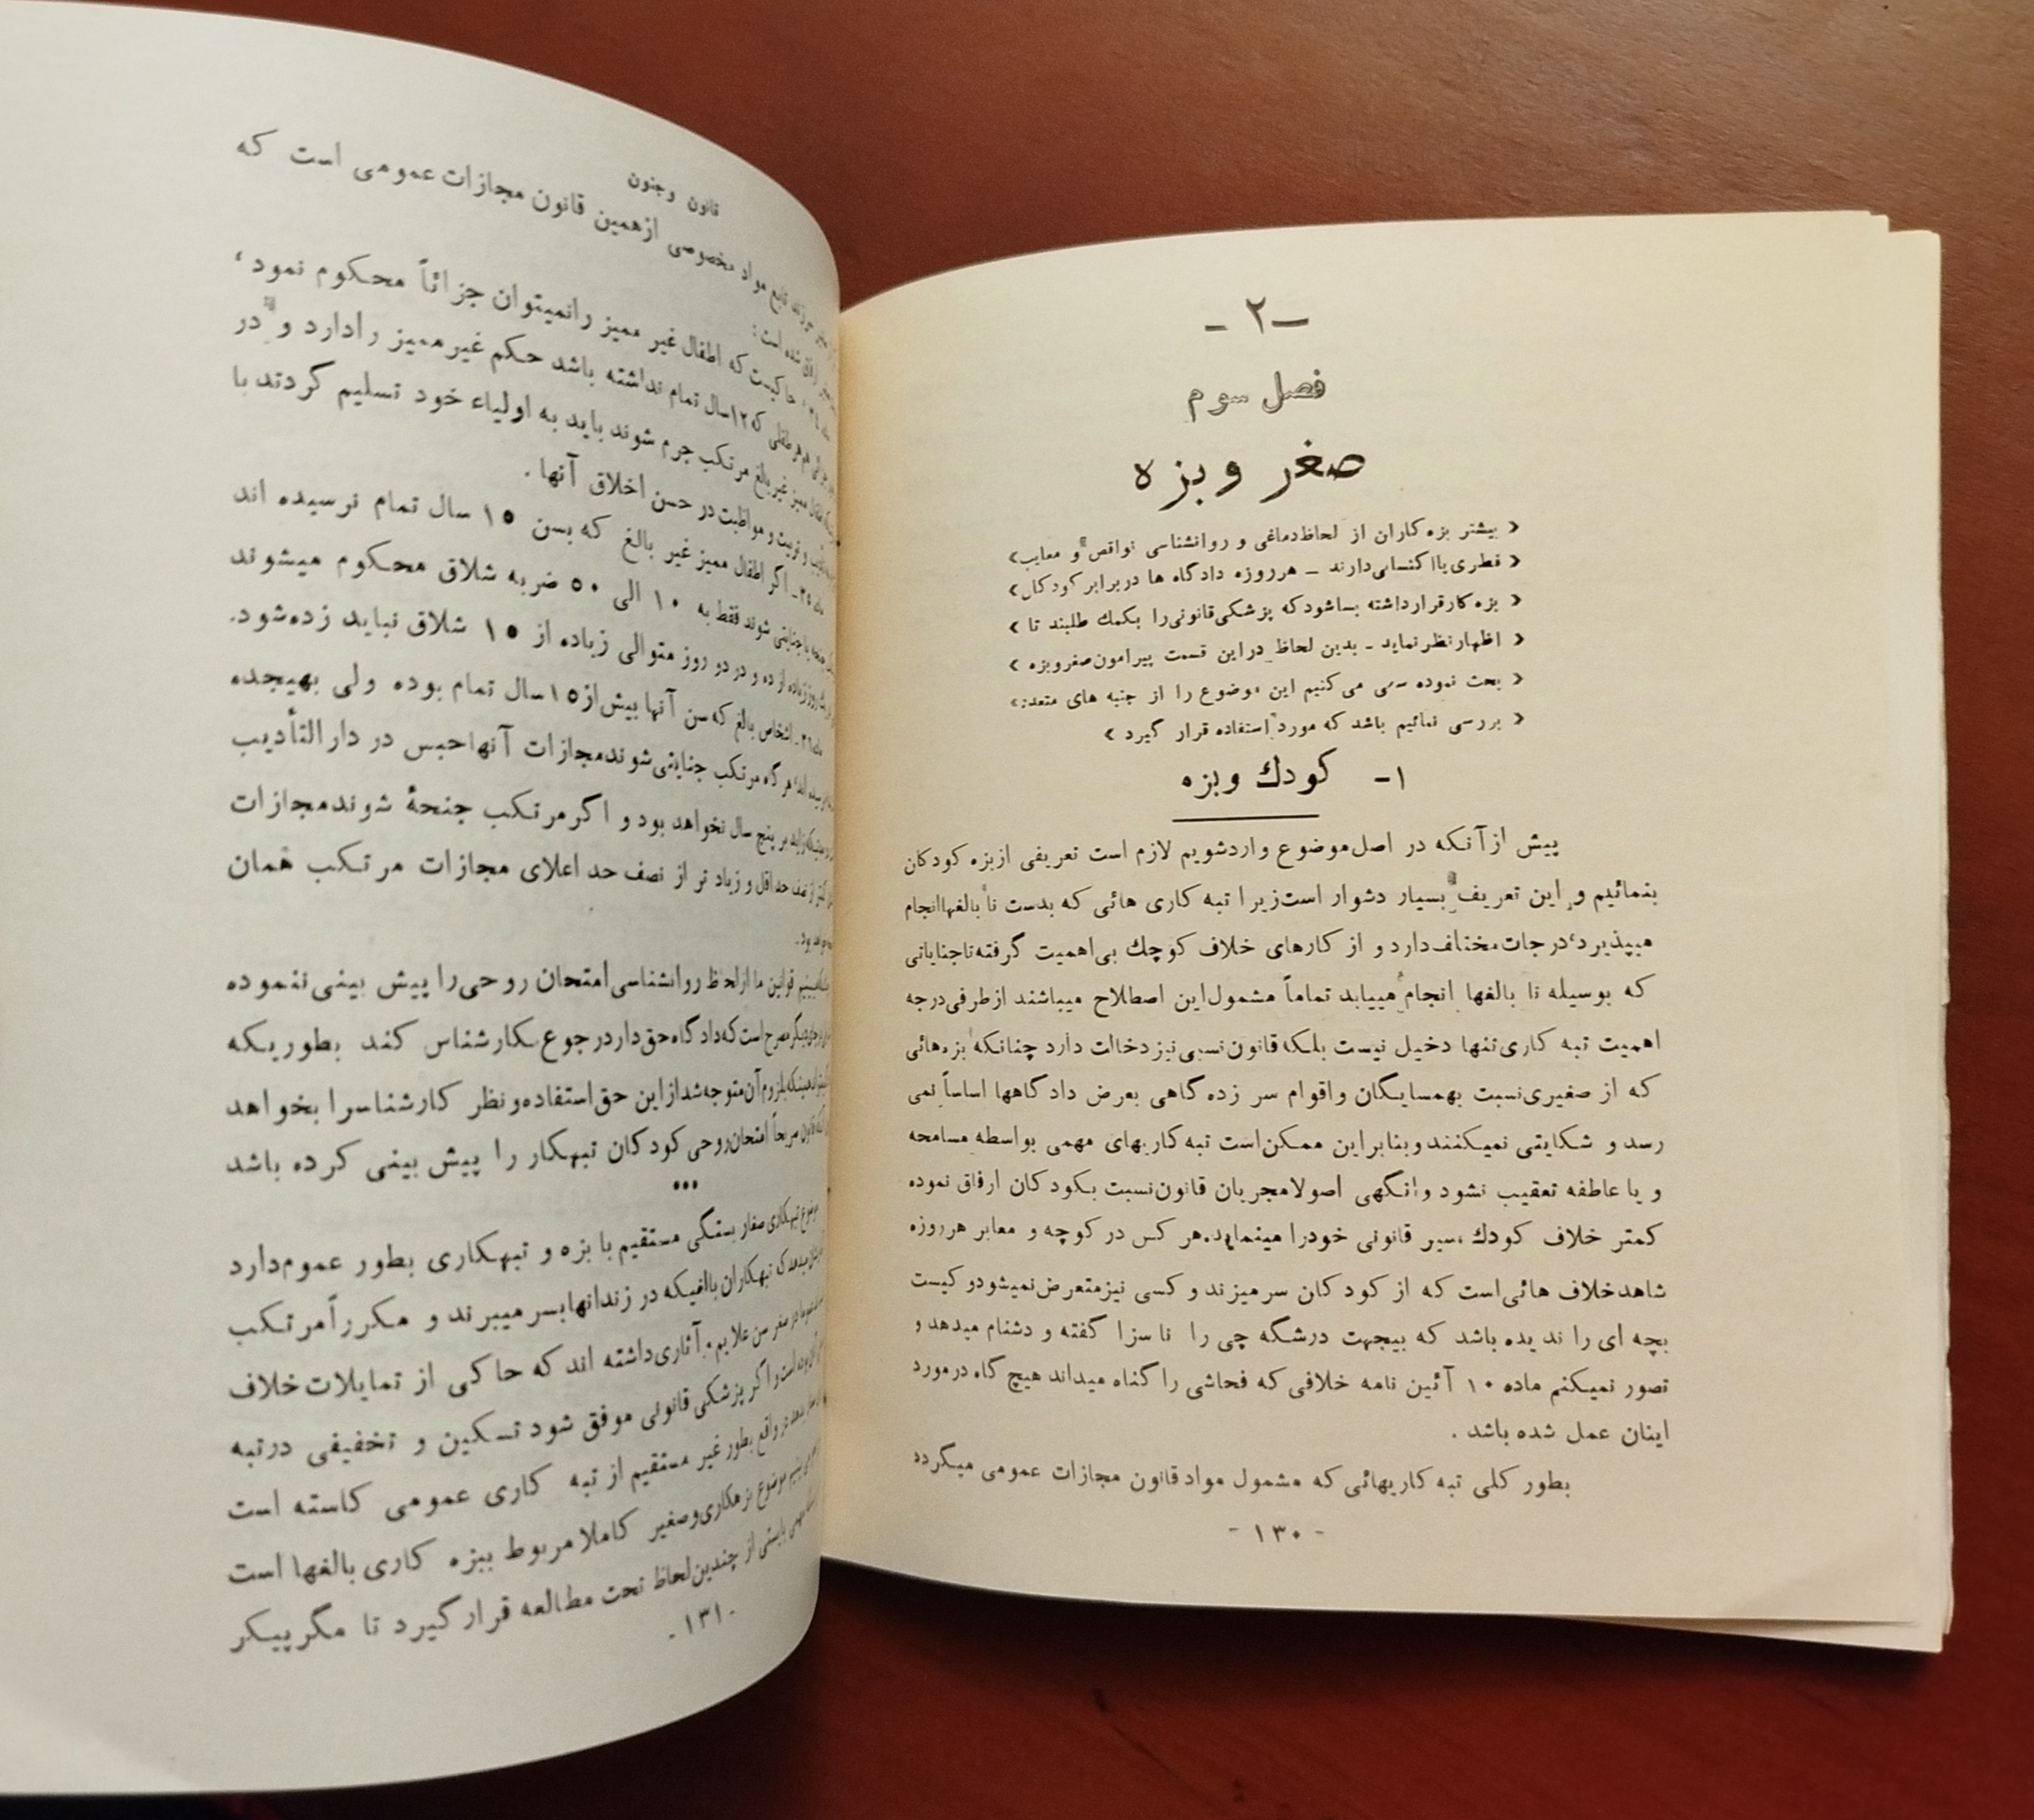 ـ ۲ ـ
فصل سوم
صغر و بزه
« بیشتر بزه‌کاران از لحاظ دماغی و روانشناسی نواقص و معایب»
« فطری یا اکتسابی دارند ـ هر روزه دادگاه ها در برابر کودکان»
« بزه کار قرار داشته بسا شود که پزشکی قانونی را بکمك طلبند تا »
« اظهار نظر نماید ـ بدین لحاظ در این قسمت پیرامون صغر و بزه »
« بحث نموده سعی می کنیم این موضوع را از جنبه های متعدد»
« بررسی نمائیم باشد که مورد استفاده قرار گیرد »
۱- کودك و بزه
پیش از آنکه در اصل موضوع وارد شویم لازم است تعریفی از بزه کودکان
بنمائیم و این تعریف بسیار دشوار است زیرا تبه کاری هائی که بدست نا بالغها انجام
میپذیرد، درجات مختلف دارد و از کارهای خلاف کوچك بی اهمیت گرفته تا جنایاتی
که بوسیله نا بالغها انجام مییابد تماماً مشمول این اصطلاح میباشند از طرفی درجه
اهمیت تبه کاری تنها دخیل نیست بلکه قانون نسبی نیز دخالت دارد چنانکه بزه‌هائی
که از صغیری نسبت بهمسایگان و اقوام سر زده گاهی بعرض دادگاهها اساساً نمی
رسد و شکایتی نمیکنند و بنابراین ممکن است تبه کاریهای مهمی بواسطه مسامحه
و یا عاطفه تعقیب نشود و انگهی اصولا مجریان قانون نسبت بکودکان ارفاق نموده
کمتر خلاف کودك سیر قانونی خود را مینماید. هر کس در کوچه و معابر هر روزه
شاهد خلاف هائی است که از کودکان سر میزند و کسی نیز متعرض نمیشود و کیست
بچه ای را ندیده باشد که بیجهت درشگه چی را نا سزا گفته و دشنام میدهد و
تصور نمیکنم ماده ۱۰ آئین نامه خلافی که فحاشی را گناه میداند هیچ گاه در مورد
اینان عمل شده باشد .
بطور کلی تبه کاریهائی که مشمول مواد قانون مجازات عمومی میگردد
- ۱۳۰ -
قانون و جنون
تابع مواد مخصوصی از همین قانون مجازات عمومی است که
شده است :
حاکیست که اطفال غیر ممیز را نمیتوان جزائاً محکوم نمود ،
هر طفلی که ۱۲ سال تمام نداشته باشد حکم غیر ممیز را دارد و در
ممیز غیر بالغ مرتکب جرم شوند باید به اولیاء خود تسلیم گردند با
و تربیت و مواظبت در حسن اخلاق آنها .
اگر اطفال ممیز غیر بالغ که بسن ۱۵ سال تمام نرسیده اند
جنایتی شوند فقط به ۱۰ الی ۵۰ ضربه شلاق محکوم میشوند
روز زیاده از ده و در دو روز متوالی زیاده از ۱۵ شلاق نباید زده شود.
اشخاص بالغ که سن آنها بیش از ۱۵ سال تمام بوده ولی بهیجده
هر گاه مرتکب جنایتی شوند مجازات آنها حبس در دار التأدیب
زاید بر پنج سال نخواهد بود و اگر مرتکب جنحهٔ شوند مجازات
از نصف حد اقل و زیاد تر از نصف حد اعلای مجازات مرتکب همان
بود.
قوانین ما از لحاظ روانشناسی امتحان روحی را پیش بینی ننموده
مصرح است که دادگاه حق دارد رجوع بکارشناس کند بطوریکه
بلزوم آن متوجه شد از این حق استفاده و نظر کارشناس را بخواهد
قانون صریحاً امتحان روحی کودکان تبهکار را پیش بینی کرده باشد
•••
موضوع تبهکاری صغار بستگی مستقیم با بزه و تبهکاری بطور عموم دارد
تبهکاران بالغیکه در زندانها بسر میبرند و مکرراً مرتکب
در صغر سن علایم و آثاری داشته اند که حاکی از تمایلات خلاف
است و اگر پزشکی قانونی موفق شود تسکین و تخفیفی در تبه
در واقع بطور غیر مستقیم از تبه کاری عمومی کاسته است
موضوع بزهکاری و صغیر کاملا مربوط ببزه کاری بالغها است
بایستی از چندین لحاظ تحت مطالعه قرار گیرد تا مگر پیکر
- ۱۳۱ -